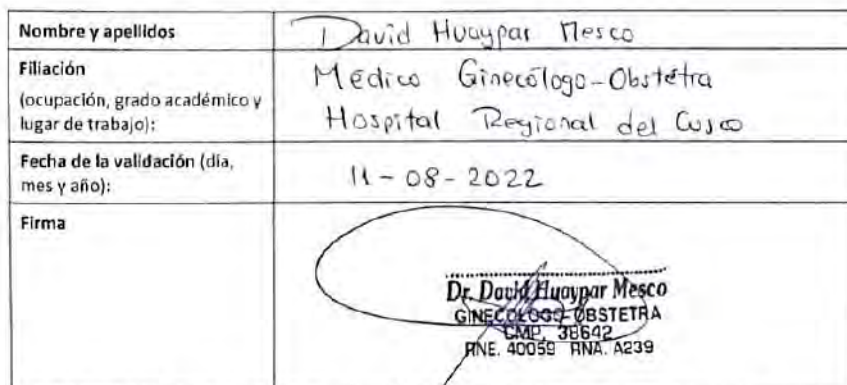 Nombre y apellidos
David Huaypar Mesco
Filiación
(ocupación, grado académico y
lugar de trabajo):
Médico Ginecólogo-Obstétra
Hospital Regional del Cusco
Fecha de la validación (día,
mes y año):
11-08-2022
Firma
Dr. David Huaypar Mesco
GINECOLOGO-OBSTETRA
CMP. 38642
RNE. 40059 RNA. A239